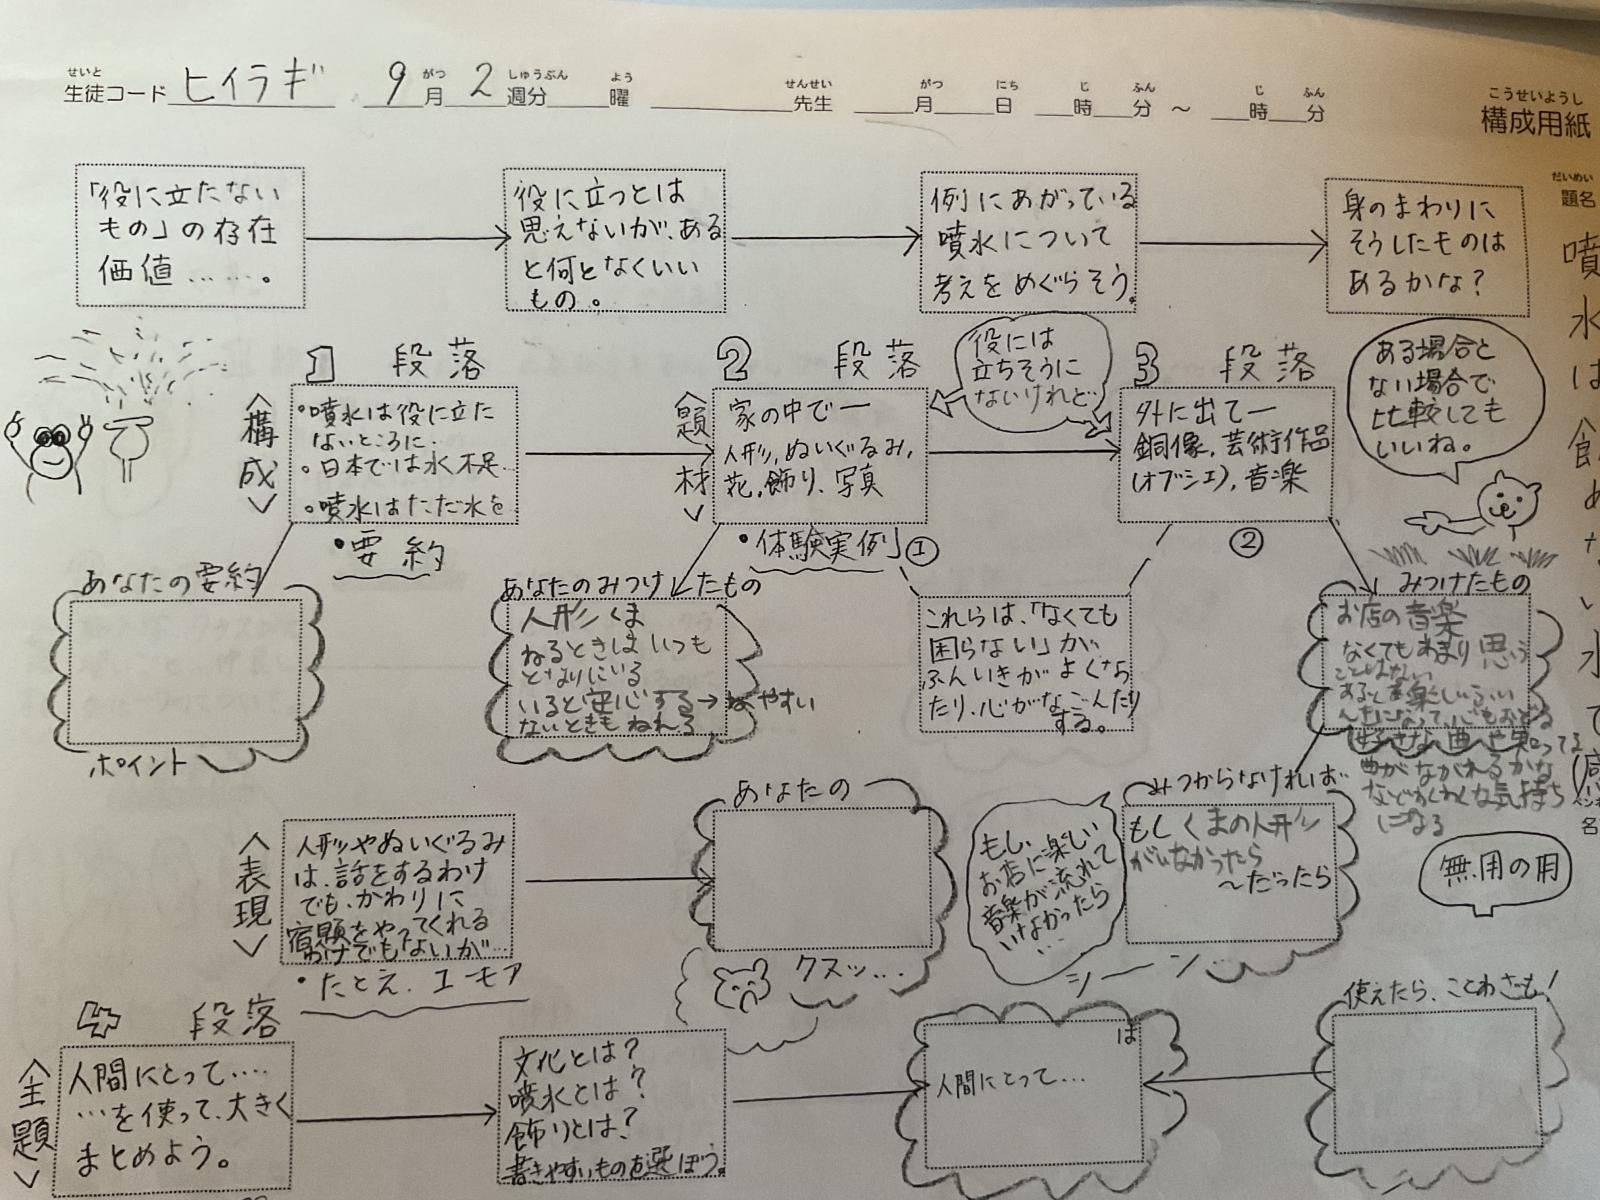 せいと がつ しゅうぶん よう せんせい がつ にち じ ふん じ ふん こうせいようし
生徒コード ヒイラギ 9月2週分 曜 先生 月 日 時 分 ～ 時 分 構成用紙
「役に立たない
もの」の存在
価値……。
役に立つとは
思えないが、ある
と何となくいい
もの。
例にあがっている
噴水について
考えをめぐらそう。
身のまわりに
そうしたものは
あるかな？
だいめい
題名
噴水は飾
〈構成〉
1 段落
・噴水は役に立た
ないところに…
。日本では水不足…
。噴水はただ水を
・要約
〈題材〉
2 段落
家の中で―
人形,ぬいぐるみ,
花,飾り、写真
・体験実例 ①
役には
立ちそうに
ないけれど…
3 段落
外に出て―
銅像、芸術作品
(オブジェ),音楽
②
ある場合と
ない場合で
比較しても
いいね。
あなたの要約
ポイント
あなたのみつけたもの
人形 くま
ねるときは いつも
となりにいる
いると安心する→ねやすい
ないときも ねれる
これらは、「なくても
困らない」が
ふんいきがよくなっ
たり、心がなごんだり
する。
みつけたもの
お店の音楽
なくてもあまり思う
ことはない
好きな曲や知ってる
曲がながれるかな
などわくわくな気持ち
になる
〈表現〉
人形やぬいぐるみ
は、話をするわけ
でも、かわりに
宿題をやってくれる
わけでもないが…
・たとえ、ユーモア
あなたの
クスッ…
もし、
お店に楽しい
音楽が流れて
いなかったら
…
みつからなければ…
もしくまの人形
がいなかったら
～だったら
シーン…
無用の用
〈主題〉
4 段落
人間にとって‥‥
…を使って、大きく
まとめよう。
文化とは？
噴水とは？
飾りとは？
書きやすいものを選ぼう。
は
人間にとって…
使えたら、ことわざも！